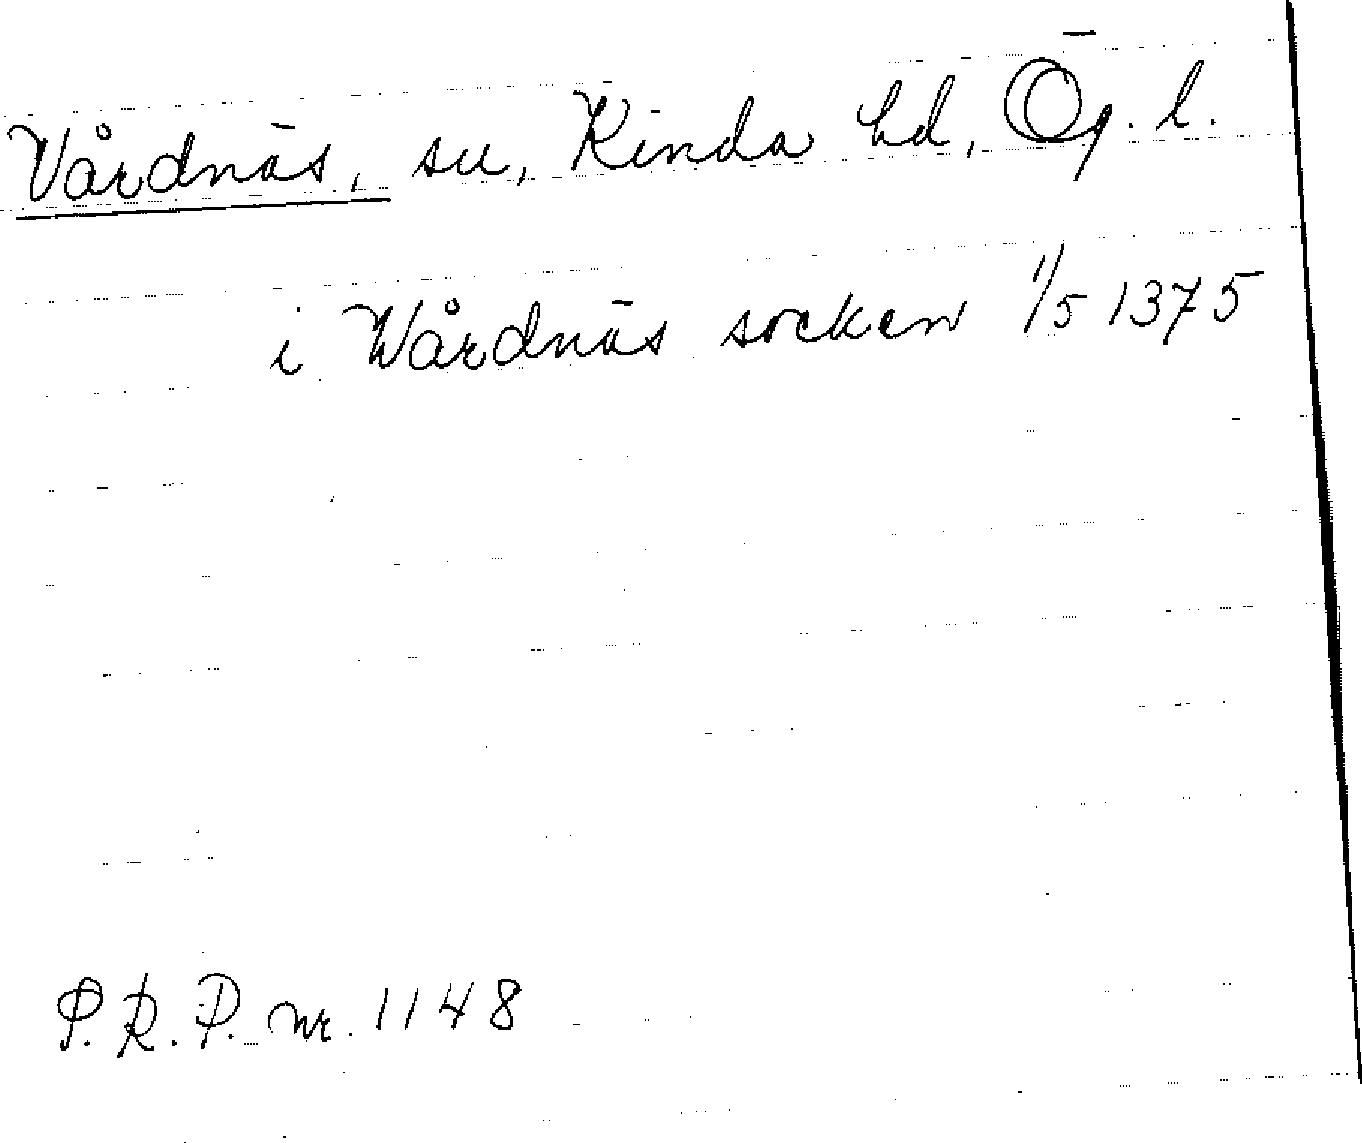 Vårdnäs, sn, Kinda hd, Ög. l.
i Wårdnäs socken 1/5 1375
P.R.P. nr. 1148